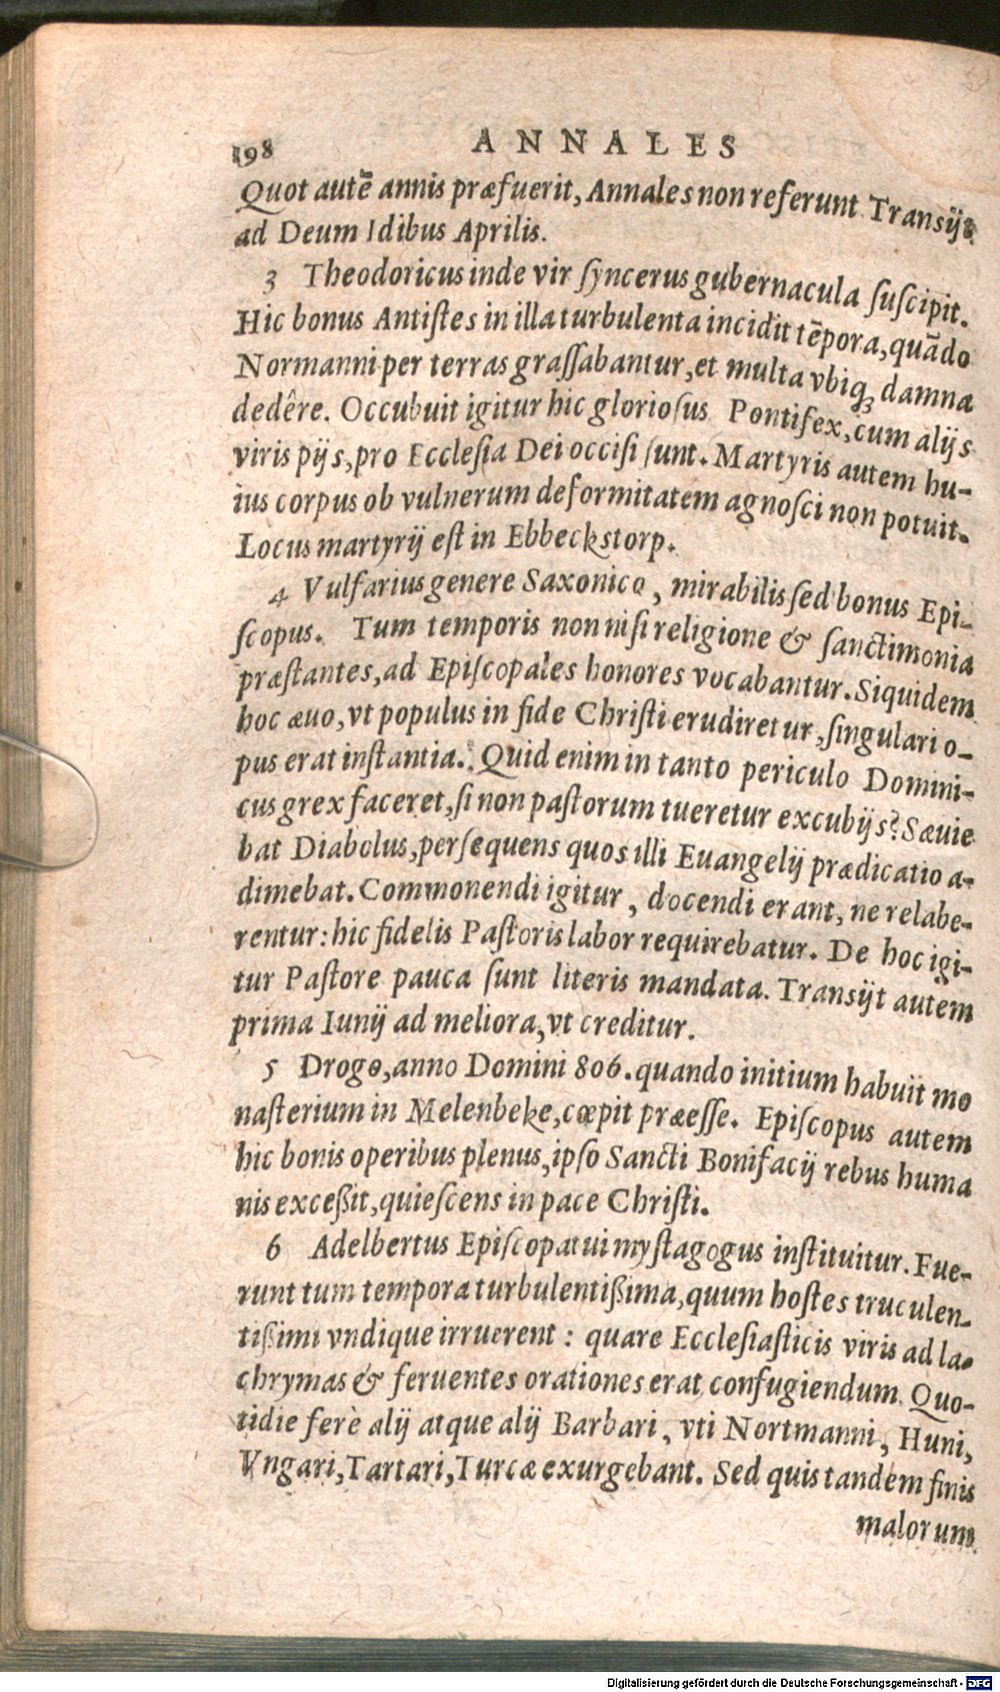 198 ANNALES
Quot autē annis præfuerit, Annales non referunt. Transijt
ad Deum Idibus Aprilis.
3 Theodoricus inde vir ſyncerus gubernacula ſuſcipit.
Hic bonus Antiſtes in illa turbulenta incidit tēpora, quādo
Normanni per terras graſſabantur, et multa vbiq; damna
dedêre. Occubuit igitur hic glorioſus Pontifex, cum alijs
viris pijs, pro Eccleſia Dei occiſi ſunt. Martyris autem hu-
ius corpus ob vulnerum deformitatem agnoſci non potuit.
Locus martyrij eſt in Ebbeckstorp.
4 Vulfarius genere Saxonico, mirabilis ſed bonus Epi-
ſcopus. Tum temporis non niſi religione & ſanctimonia
præſtantes, ad Epiſcopales honores vocabantur. Siquidem
hoc æuo, vt populus in fide Chriſti erudiretur, ſingulari o-
pus erat inſtantia. Quid enim in tanto periculo Domini-
cus grex faceret, ſi non paſtorum tueretur excubijs? Sæuie
bat Diabolus, perſequens quos illi Euangelij prædicatio a-
dimebat. Commonendi igitur, docendi erant, ne relabe-
rentur: hic fidelis Paſtoris labor requirebatur. De hoc igi-
tur Paſtore pauca ſunt literis mandata. Transijt autem
prima Iunij ad meliora, vt creditur.
5 Drogo, anno Domini 806. quando initium habuit mo
naſterium in Melenbeke, cœpit præeſſe. Epiſcopus autem
hic bonis operibus plenus, ipſo Sancti Bonifacij rebus huma
nis exceßit, quieſcens in pace Chriſti.
6 Adelbertus Epiſcopatui myſtagogus inſtituitur. Fue-
runt tum tempora turbulentißima, quum hoſtes truculen-
tißimi vndique irruerent: quare Eccleſiaſticis viris ad la-
chrymas & feruentes orationes erat confugiendum. Quo-
tidie ferè alij atque alij Barbari, vti Nortmanni, Huni,
Vngari, Tartari, Turcæ exurgebant. Sed quis tandem finis
malorum
Digitalisierung gefördert durch die Deutsche Forschungsgemeinschaft - DFG